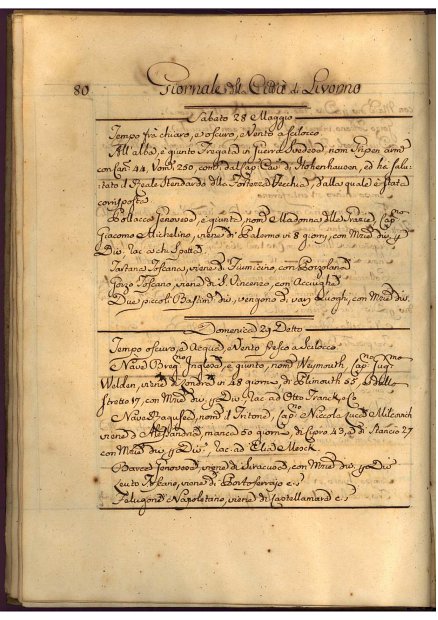 80 Giornale della Città di Livorno
Sabato 28 Maggio
Tempo fra chiaro, e oscuro, e Vento a Scilocco.
All'alba, è giunto Fregata in Guerra Svedese, nom.
con Can. 44, Vom. 250, com. dal Cap. Cav. di Hohenhauson, ed hà salu=
=tato il Reale Stendardo della Fortezza Vecchia, dalla quale è stata
corrisposta.
Pollacca Genovese, è giunta, nom. Madonna delle Grazie, Cap.no
Giacomo Michelino, viene di Palermo in 8 giorni, con Merci div. p
Div. rac. a chi Spetta.
Tartana Toscana, viene di Fiumicino, con Pozzolana
Gozzo Toscano, viene di S. Vincenzo, con Acciughe
Due piccoli Bastim.ti div. vengono di varj Luoghi, con Merci div.
Domenica 29 Detto
Tempo oscuro, ed Acqua, e Vento fresco a Scilocco.
Nave Inglese, è giunto, nom. Weymouth, Cap.
Welden, viene di Londra in 48 giorni, di Plimouth 55, e dallo
Stretto 17, con Merci div. p Div. rac. ad Otto Franck, e C.
Nave Ragusea, nom. l'Intone, Cap.no Niccola Luca Milcovich
viene d'Alessandria, manca 50 giorni, di Cipro 43, e di Stancio 27
con Merci div. p Div. rac. ad Elia
Barca Genovese, viene di Siracusa, con Merci div. p Div.
Leuto Toscano, viene di Portoferrajo
Felugone Napoletano, viene di Castellamare